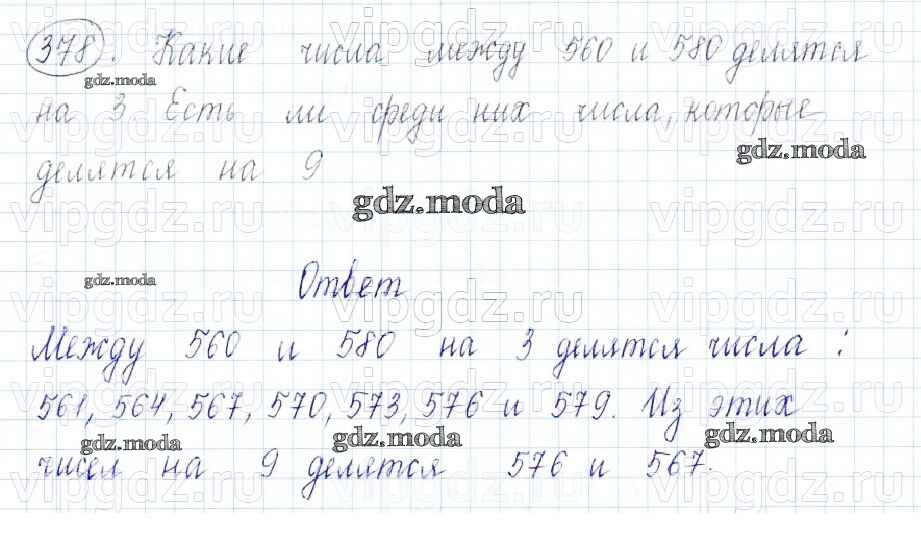 378. Какие числа между 560 и 580 делятся
gdz.moda
на 3. Есть ли среди них числа, которые
gdz.moda
делятся на 9
gdz.moda
gdz.moda
Ответ
Между 560 и 580 на 3 делятся числа:
561, 564, 567, 570, 573, 576 и 579. Из этих
gdz.moda gdz.moda gdz.moda
чисел на 9 делятся 576 и 567.
vipgdz.ru vipgdz.ru vipgdz.ru